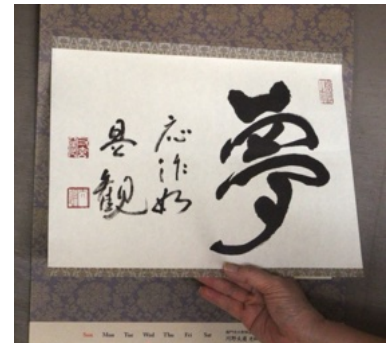 夢
応作如
是観
Sun Mon Tue Wed Thu Fri Sat